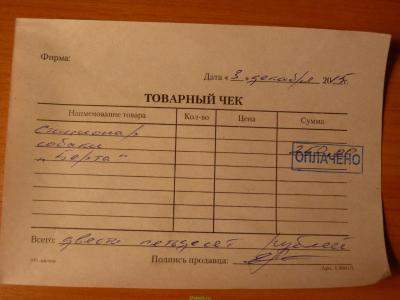 Фирма:
Дата « 3 » декабря 2015г.
ТОВАРНЫЙ ЧЕК
Наименование товара Кол-во Цена Сумма
Стационар
собаки
"Берта"
ОПЛАЧЕНО
Всего: двести петьдесят рублей
Подпись продавца: